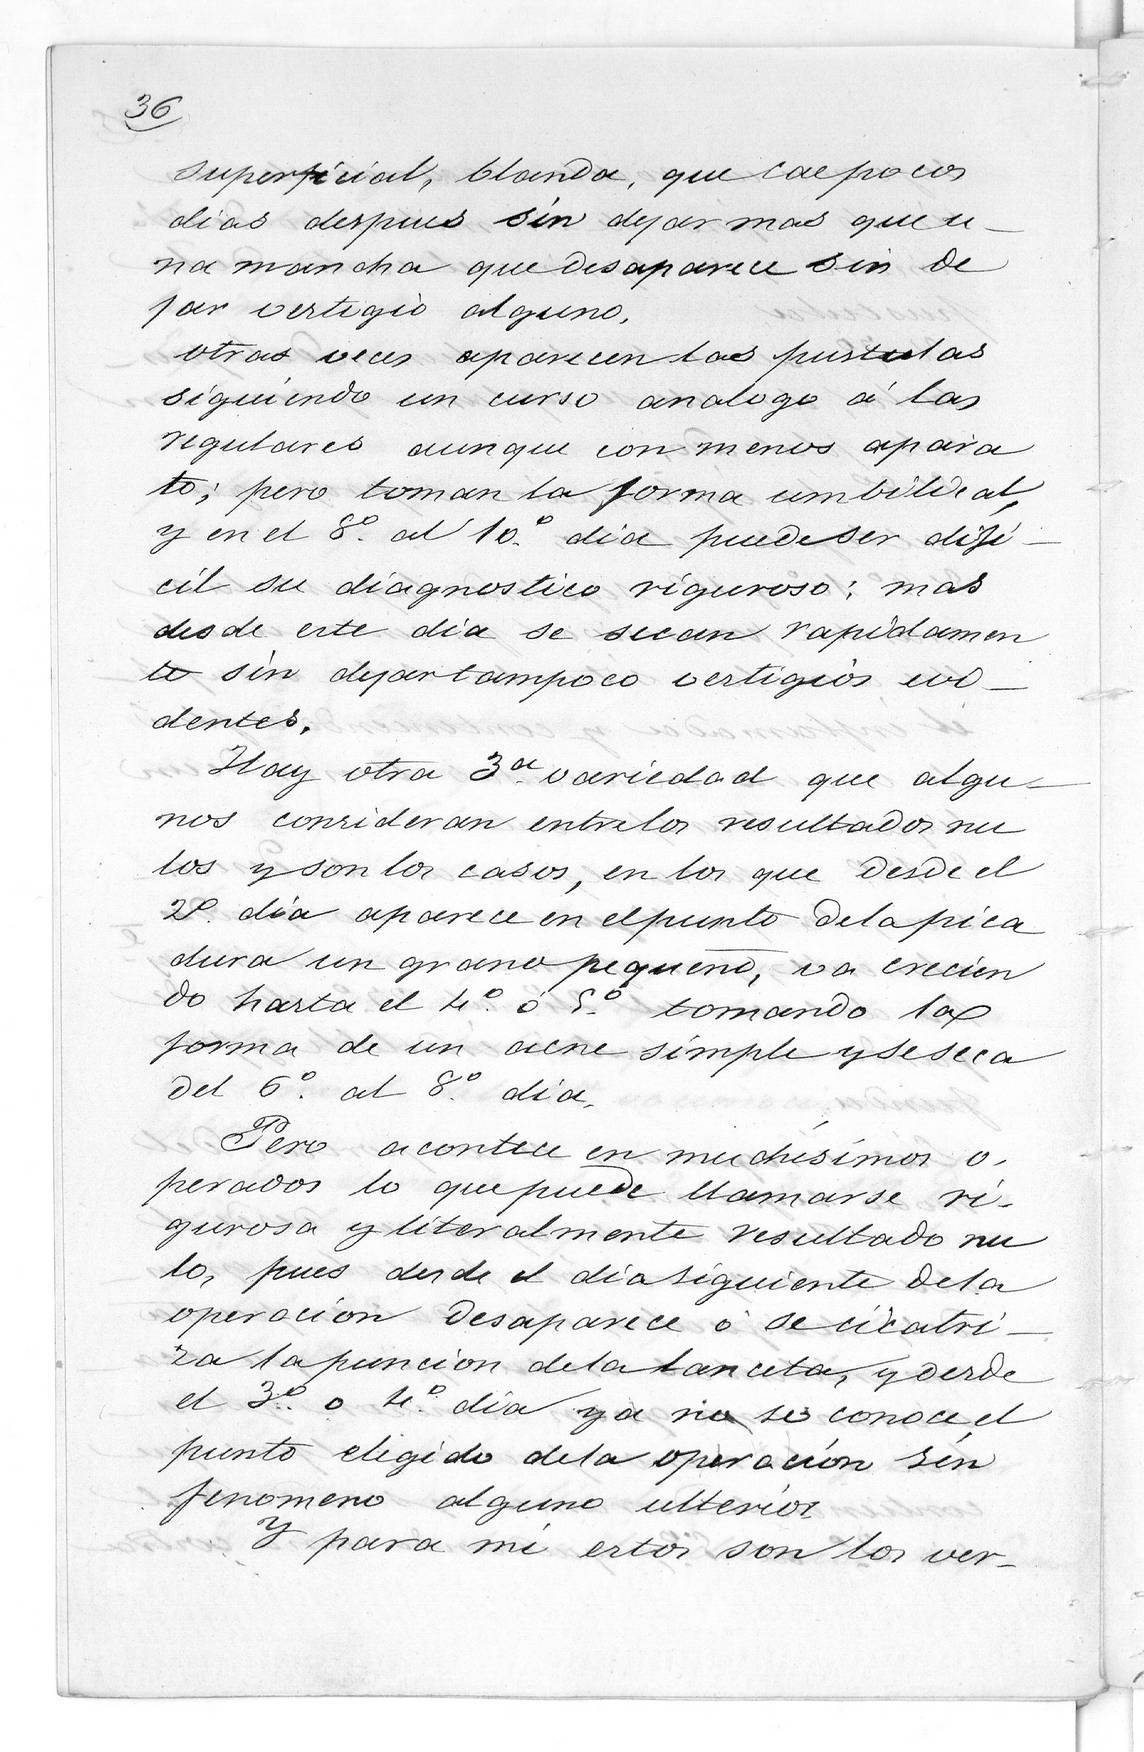 36
superficial, blanda, que cae pocos
dias despues sin dejar mas que u-
na mancha que desaparece sin de
jar vestigio alguno.
otras veces aparecen las pustulas
siguiendo un curso analogo á las
regulares aunque con menos apara
to; pero toman la forma umbilical,
y en el 8º. al 10.º dia puede ser difi-
cil su diagnostico riguroso; mas
desde este dia se secan rapidamen
te sin dejar tampoco vestigios evi-
dentes.
Hay otra 3ª. variedad que algu-
nos consideran entre los resultados nu
los y son los casos, en los que desde el
2º. dia aparece en el punto de la pica
dura un grano pequeño, va crecien
do hasta el 4º. ó 5.º tomando la
forma de un acne simple y se seca
del 6º. al 8º. dia.
Pero acontece en muchísimos o-
perados lo que puede llamarse ri-
gurosa y literalmente resultado nu
lo, pues desde el dia siguiente de la
operacion desaparece ó se cicatri-
za la puncion de la lanceta, y desde
el 3º. o 4º. dia ya no se conoce el
punto elegido de la operación sin
fenomeno alguno ulterior
Y para mi estos son los ver-